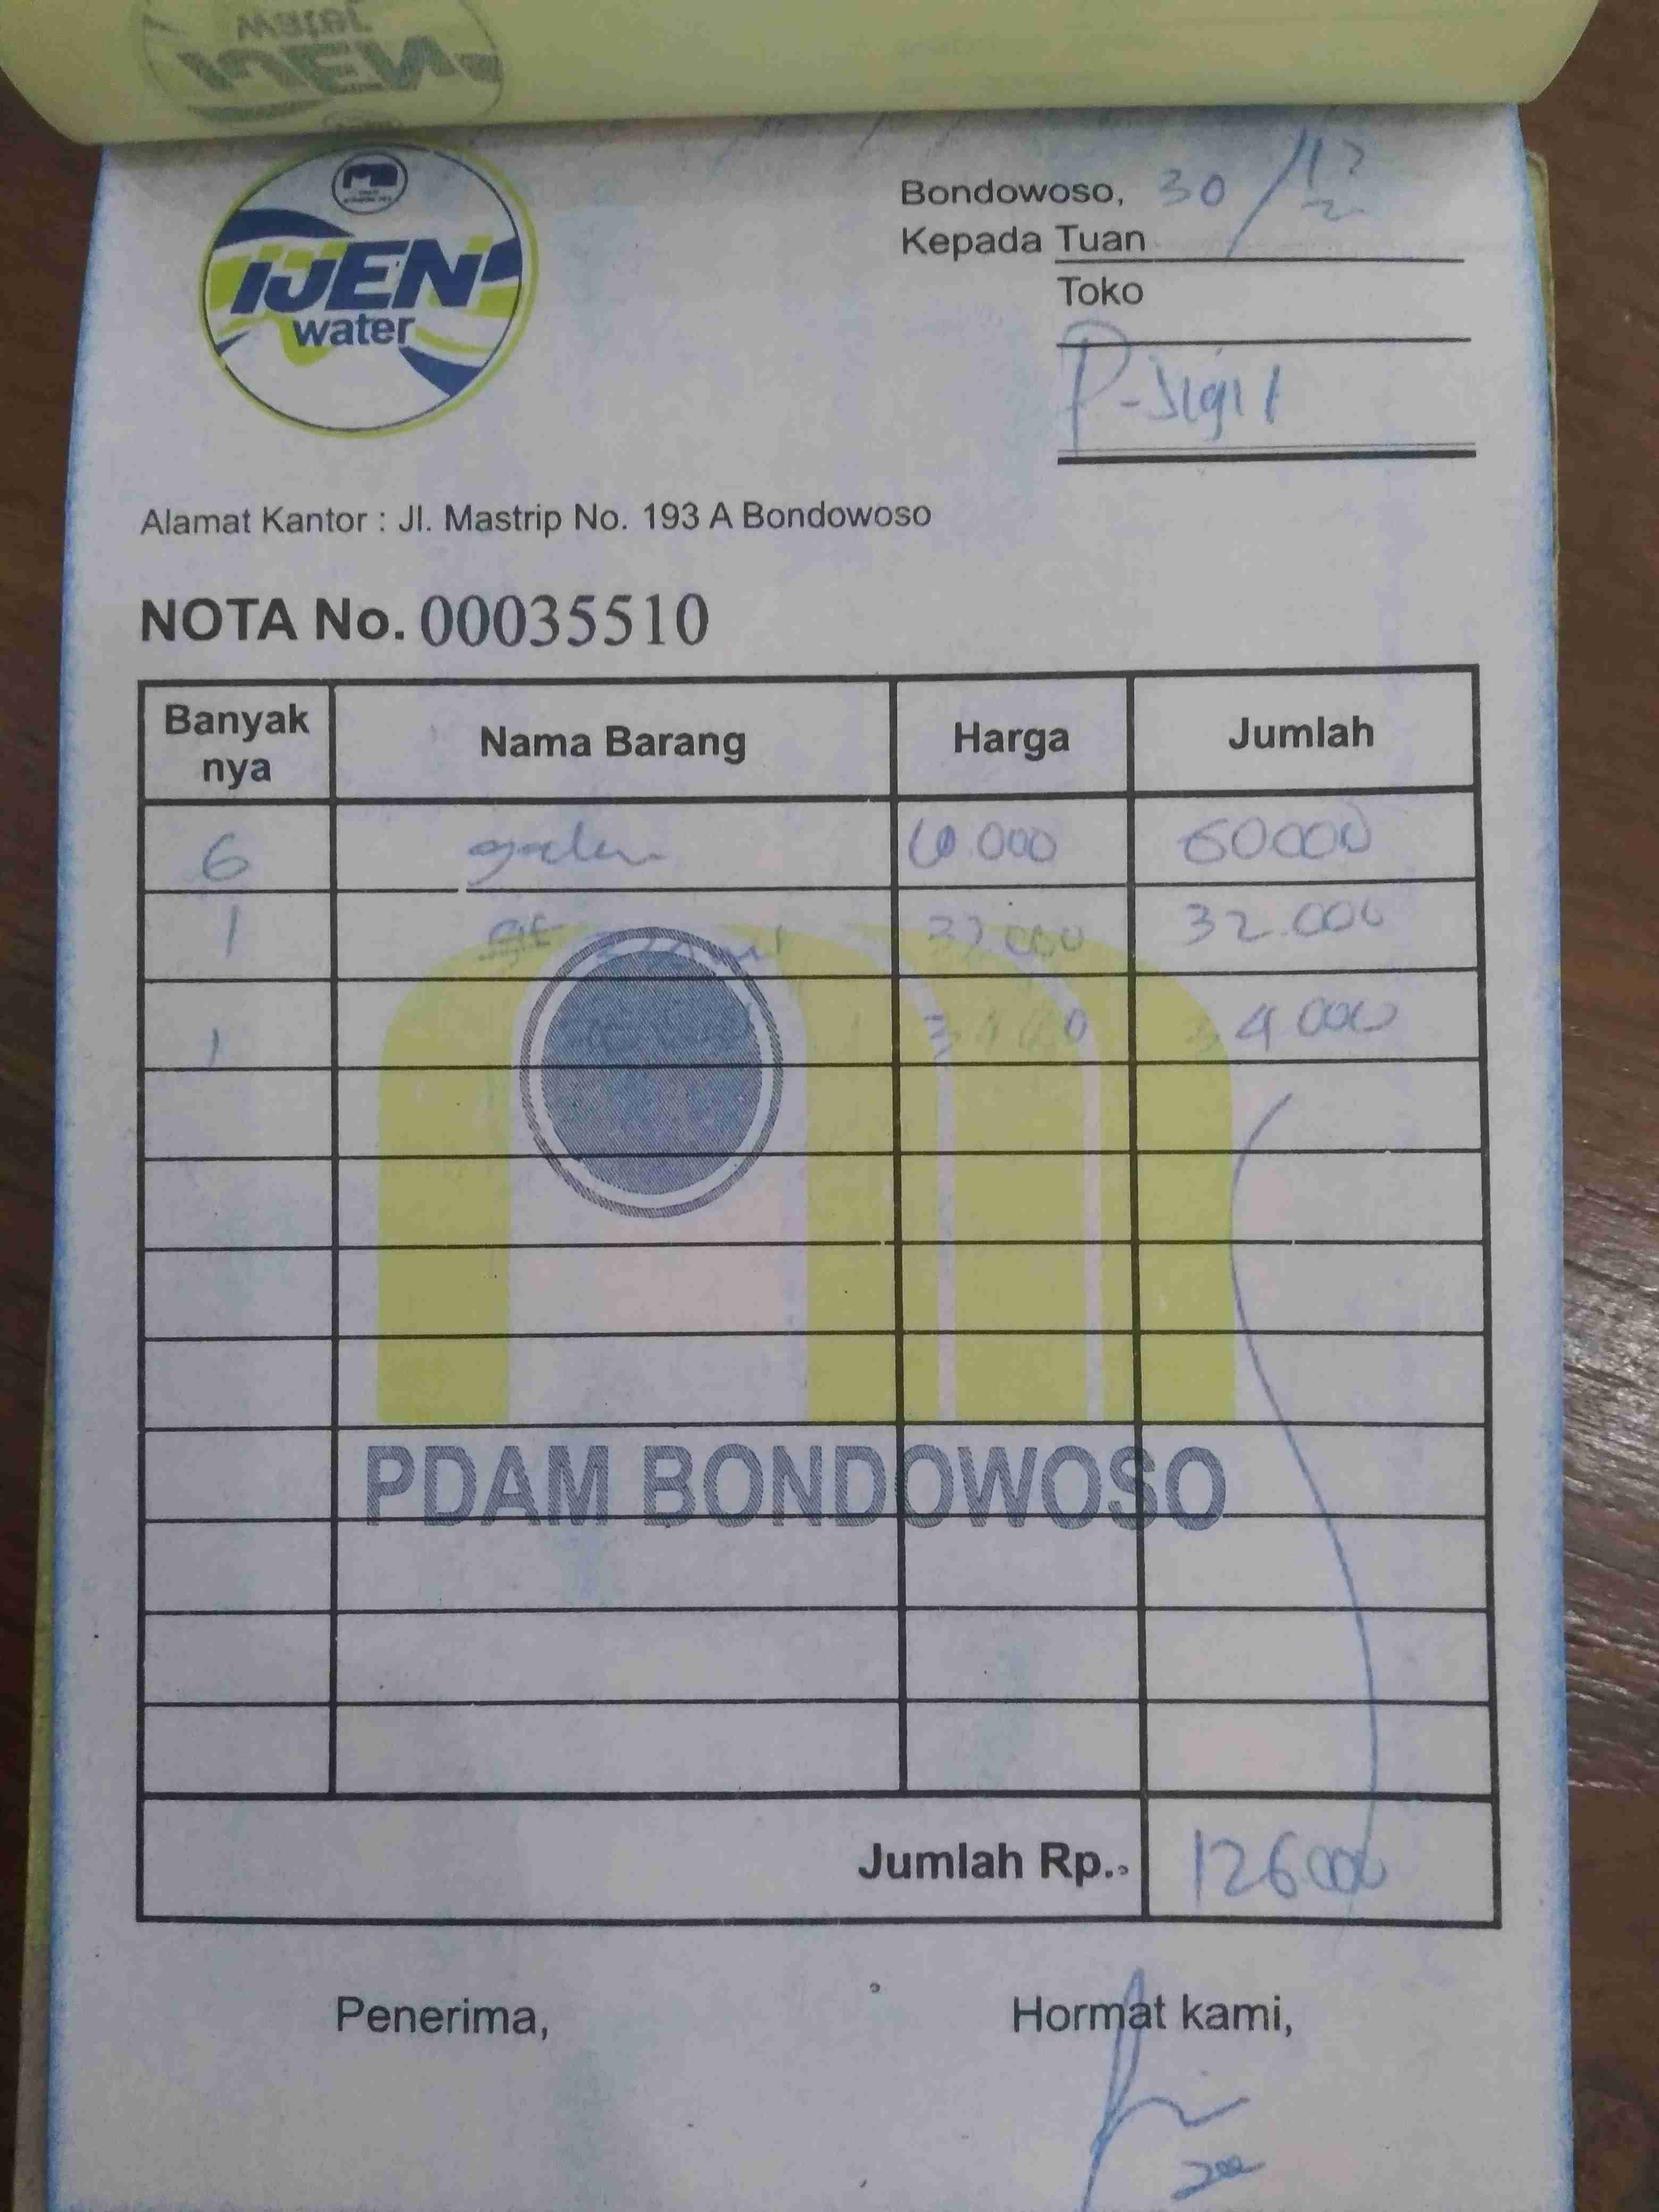 IJEN
water
Bondowoso, 30/12
Kepada Tuan
Toko
P-Sigit
Alamat Kantor : Jl. Mastrip No. 193 A Bondowoso
NOTA No. 00035510
Banyak nya Nama Barang Harga Jumlah
6 galon 10.000 60000
1 220 ml 32.000 32.000
1 34000
PDAM BONDOWOSO
Jumlah Rp. 126000
Penerima, Hormat kami,